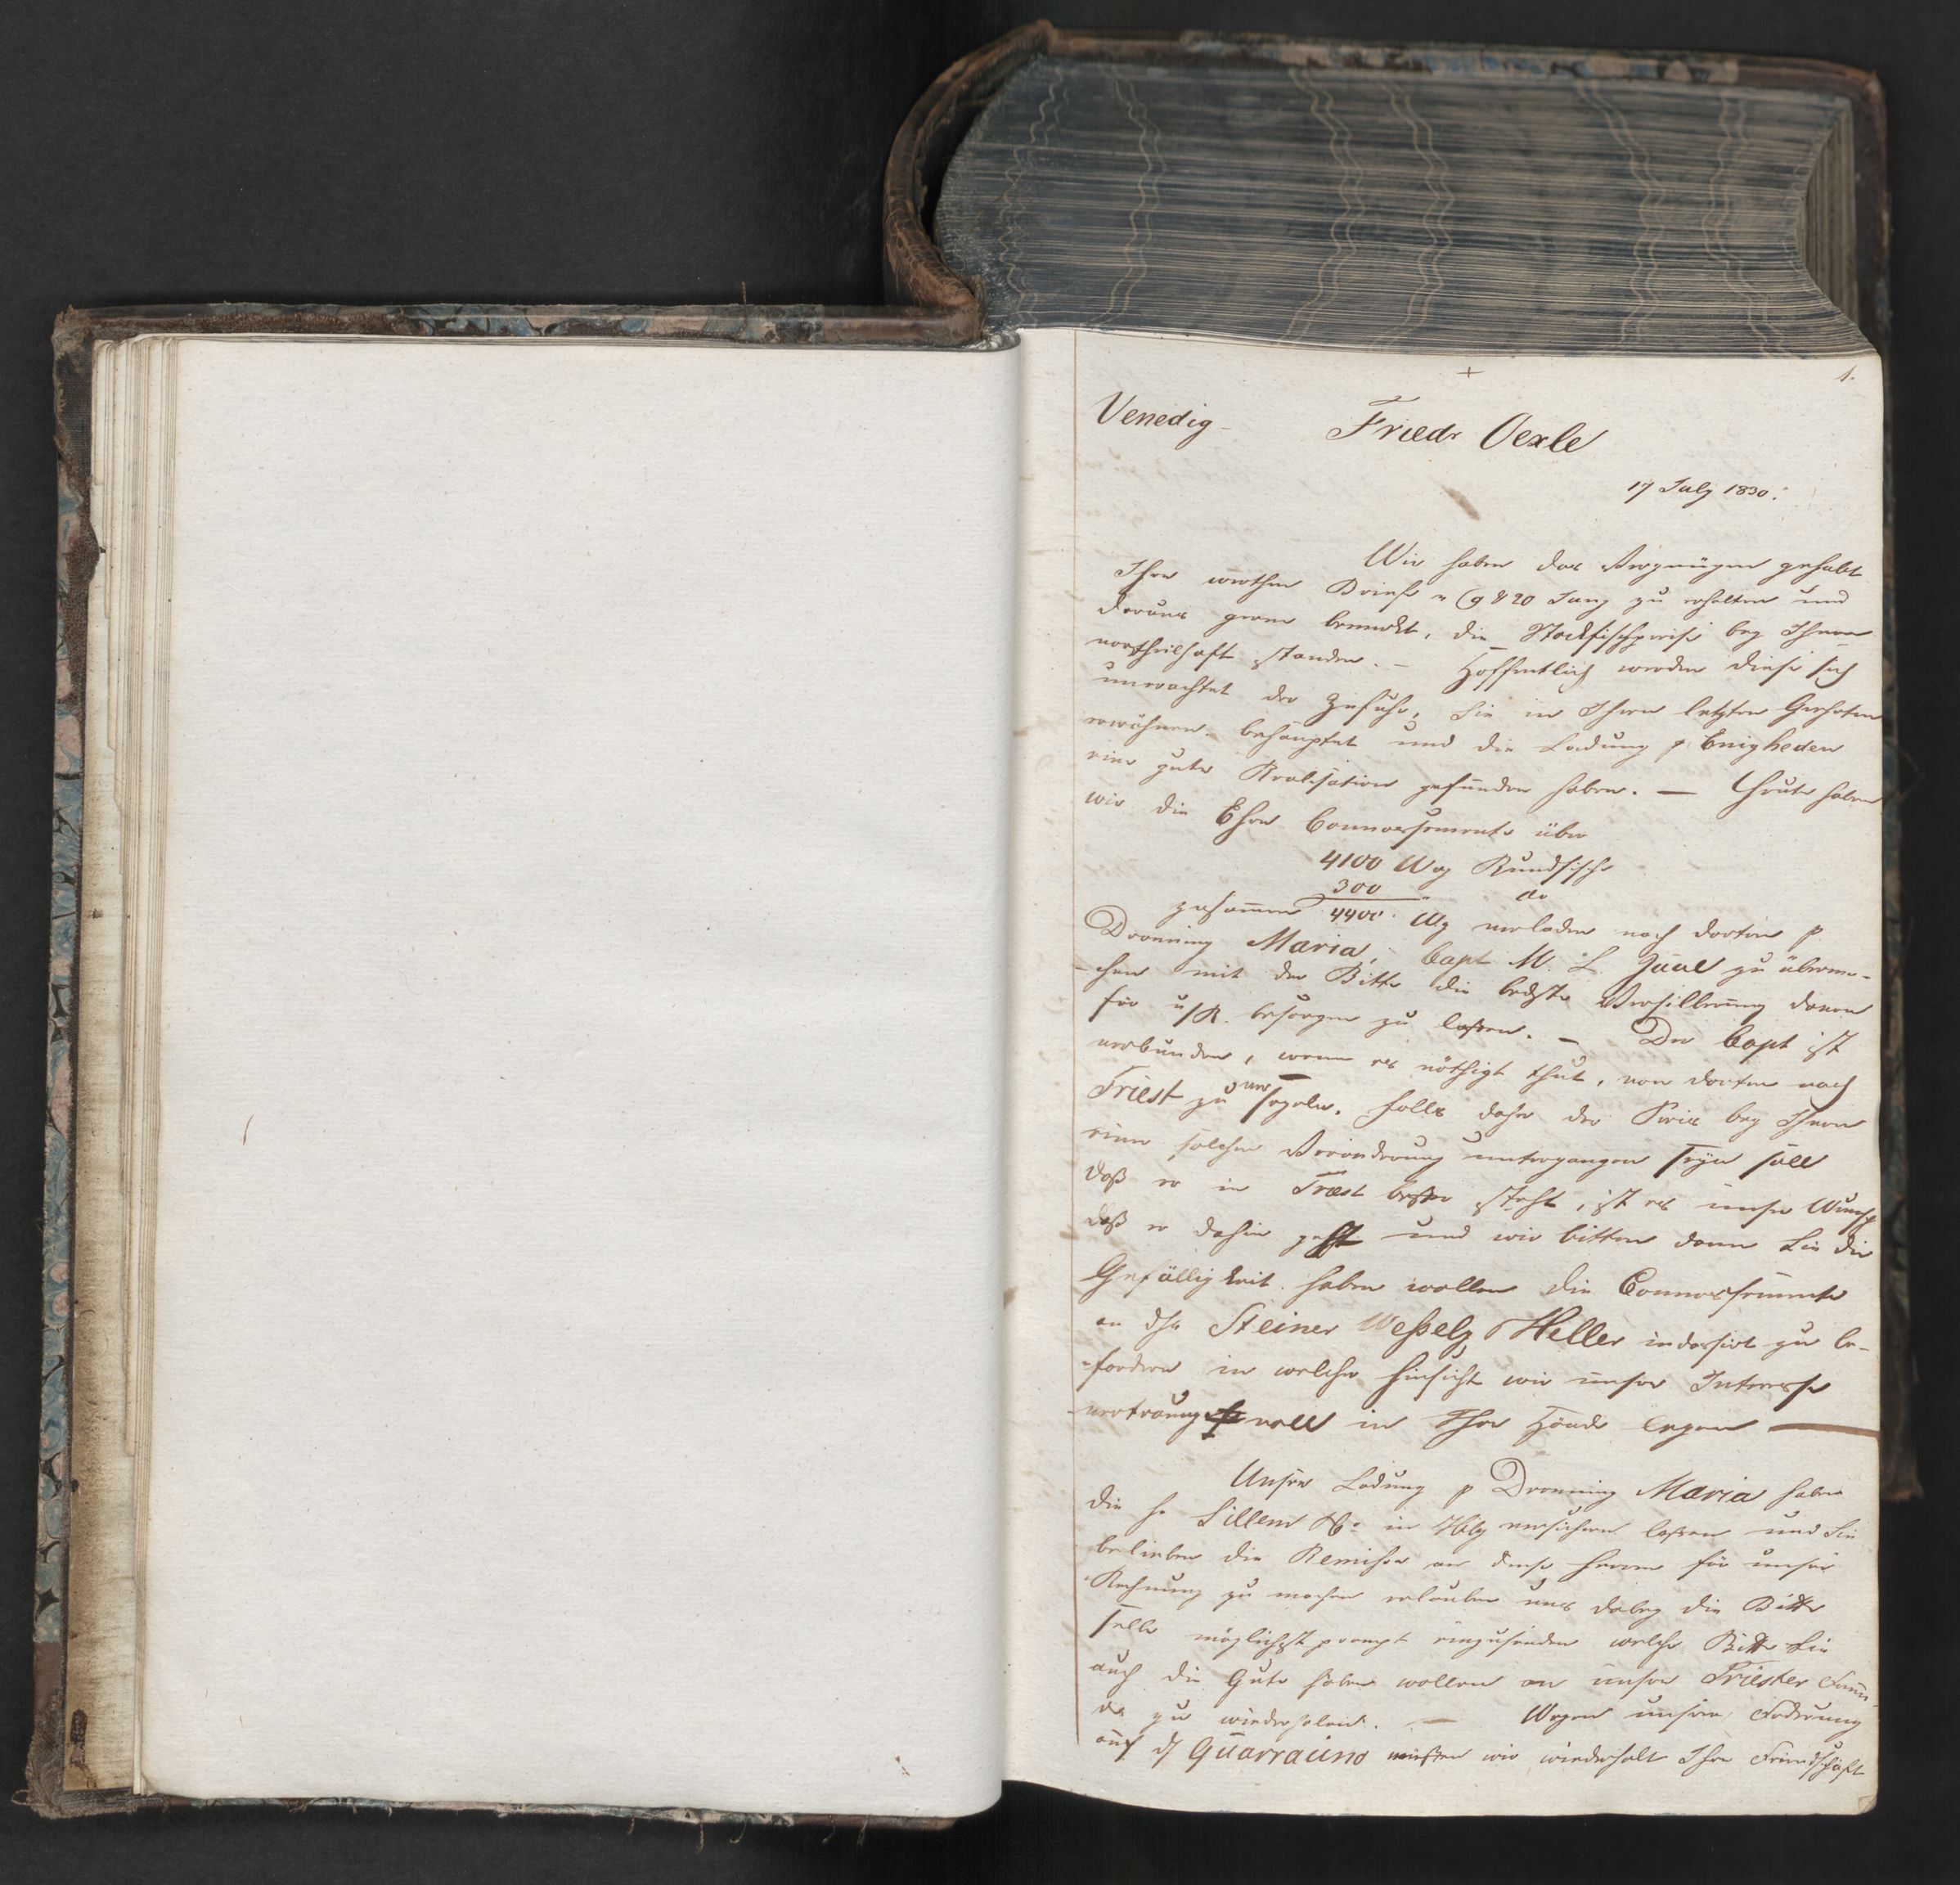 1.
Venedig - Friedr Oexle
17 July 1830.
Wir haben das Vergnügen gehabt
Ihre werthen Briefe 9 & 20 Juny zu erhalten und
daraus gerne bemerkt, die Stockfischpreise bey Ihnen
vortheilhaft standen. — Hoffentlich werden diese sich
unerachtet der Zufuhr, Sie in Ihren letzten Geehrten
erwähnen behauptet und die Ladung p Enigheden
eine gute Realisation gefunden haben. — Heute haben
wir die Ehre Connossemente über
4100 Wog Rundfische
300 do
zusammen 4400 Wog verladen nach dorten p
Dronning Maria, Capt M. L. Juul zu überma-
-chen mit der Bitte die beste Versilberung davon
für u/R. besorgen zu lassen. — Der Capt ist
verbunden, wenn es nöthigt thut, von dorten nach
Triest zu versegeln, falls daher der Preis bey Ihnen
einer solchen Veränderung untergangen seyn soll
daß er in Triest besser steht, ist es unser Wunsch
daß er dahin geht und wir bitten dann Sie die
Gefälligkeit haben wollen die Connossemente
an Steiner Weßely Heller indossirt zu be-
-fordern in welcher Hinsicht wir unser Interesse
vertrauungsvoll in Ihre Hände legen —
Unsere Ladung p Dronning Maria haben
die H. Sillem & Co in Hbg versichern lassen und Sie
belieben die Remisen an diese Herren für unsere
Rechnung zu machen erlauben uns dabey die Bitte
selbe möglichst prompt einzusenden welche Bitte Sie
auch die Güte haben wollen an unsere Triester Freun-
de zu wiederholen. — Wegen unserer Foderung
auf Guarrauno müssen wir wiederholt Ihre Freundschaft